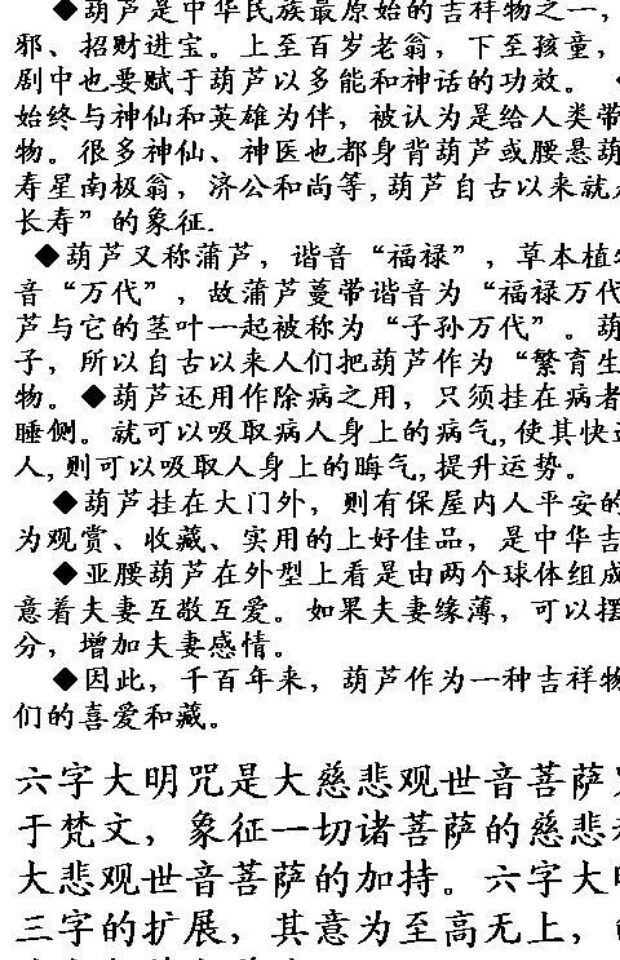 ◆葫芦是中华民族最原始的吉祥物之一，
邪、招财进宝。上至百岁老翁，下至孩童，
剧中也要赋于葫芦以多能和神话的功效。
始终与神仙和英雄为伴，被认为是给人类带
物。很多神仙、神医也都身背葫芦或腰悬葫
寿星南极翁，济公和尚等,葫芦自古以来就
长寿”的象征.
◆葫芦又称蒲芦，谐音“福禄”，草本植物
音“万代”，故蒲芦蔓带谐音为“福禄万代
芦与它的茎叶一起被称为“子孙万代”。葫
子，所以自古以来人们把葫芦作为“繁育生
物。◆葫芦还用作除病之用，只须挂在病者
睡侧。就可以吸取病人身上的病气,使其快
人,则可以吸取人身上的晦气,提升运势。
◆葫芦挂在大门外，则有保屋内人平安的
为观赏、收藏、实用的上好佳品，是中华吉
◆亚腰葫芦在外型上看是由两个球体组成
意着夫妻互敬互爱。如果夫妻缘薄，可以摆
分，增加夫妻感情。
◆因此，千百年来，葫芦作为一种吉祥物
们的喜爱和藏。
六字大明咒是大慈悲观世音菩萨
于梵文，象征一切诸菩萨的慈悲
大悲观世音菩萨的加持。六字大明
三字的扩展，其意为至高无上，